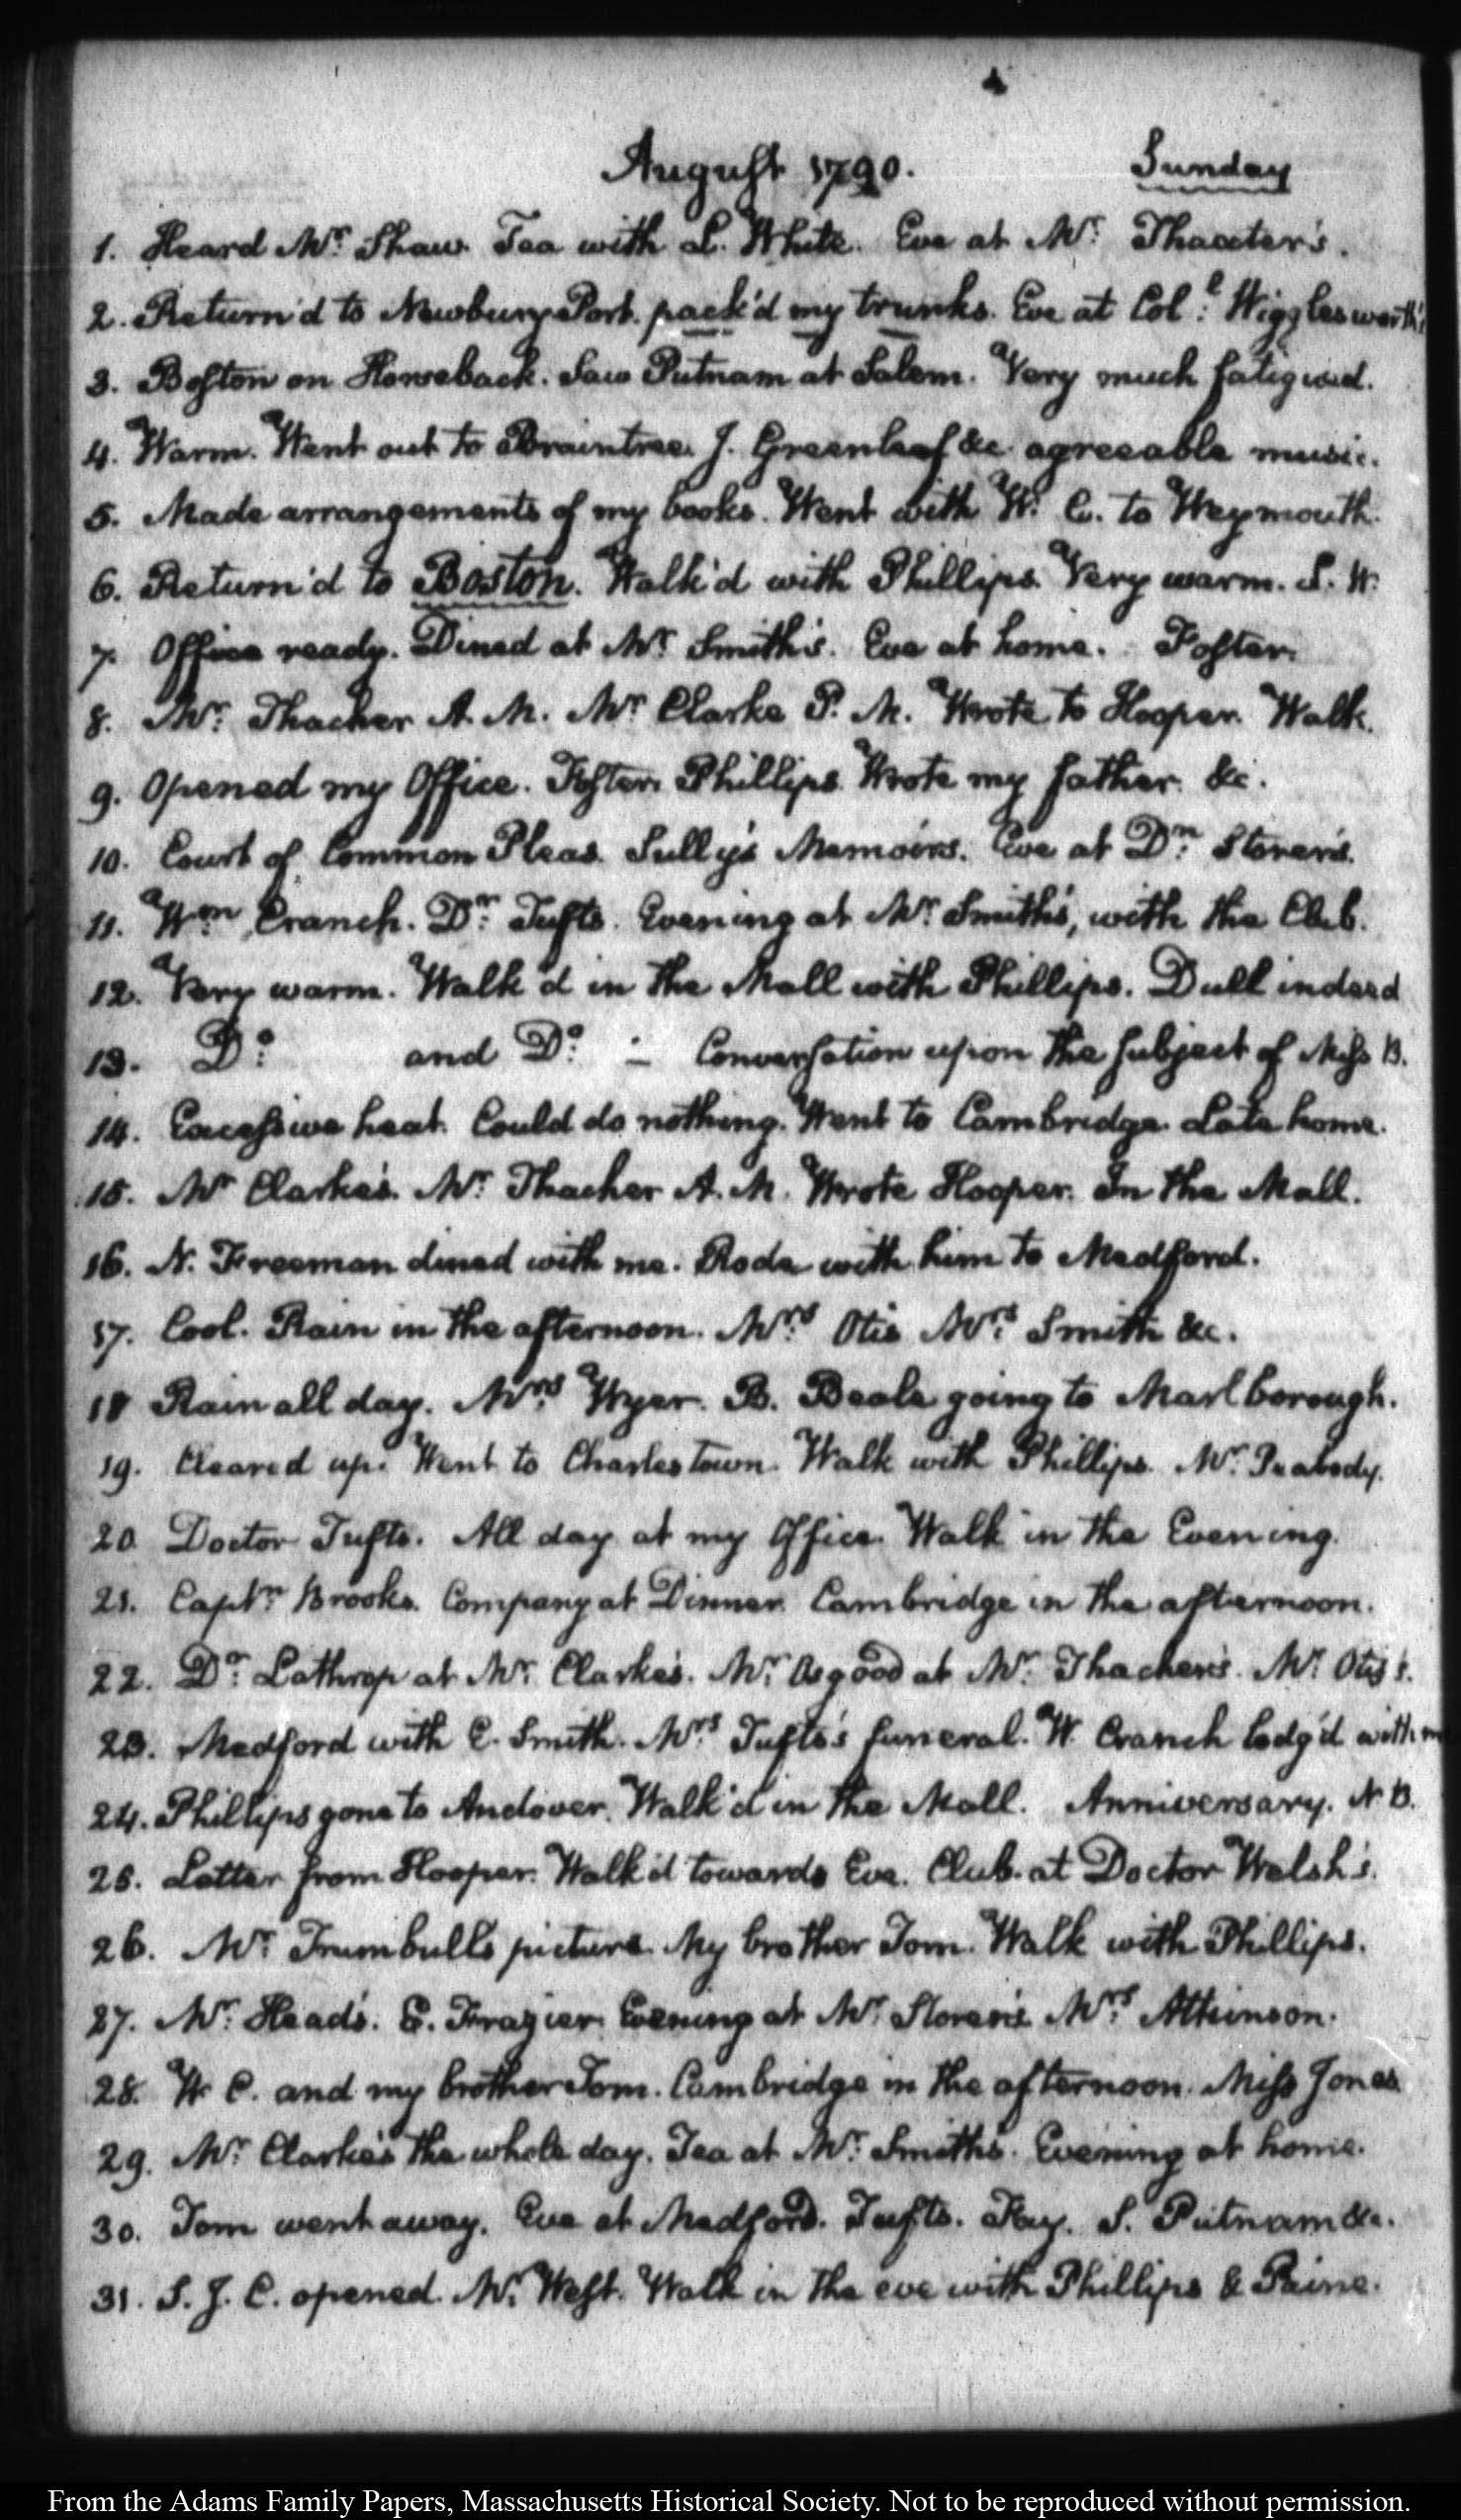 August 1790. Sunday
1. Heard Mr. Shaw. Tea with L. White. Eve at Mr. Thaxter's.
2. Return'd to Newbury-Port. pack'd my trunks. Eve at Coll. Wigglesworth's
3. Boston on Horseback. Saw Putnam at Salem. Very much fatigued.
4. Warm. Went out to Braintree. J. Greenleaf &c. agreeable music.
5. Made arrangements of my books. Went with W. C. to Weymouth.
6. Return'd to Boston. Walk'd with Phillips. Very warm. S. W.
7. Office ready. Dined at Mr. Smith's. Eve at home. Foster.
8. Mr. Thacher A. M. Mr. Clarke P. M. Wrote to Hooper. Walk.
9. Opened my Office. Foster. Phillips. Wrote my father. &c.
10. Court of Common Pleas. Sully's Memoirs. Eve at Dn. Storer's.
11. Wm. Cranch. Dr. Tufts. Evening at Mr. Smith's, with the Club.
12. Very warm. Walk'd in the Mall with Phillips. Dull indeed
13. Do. and Do. — Conversation upon the subject of Miss B.
14. Excessive heat. Could do nothing. Went to Cambridge. Late home.
15. Mr. Clarke's. Mr. Thacher A. M. Wrote Hooper. In the Mall.
16. N. Freeman dined with me. Rode with him to Medford.
17. Cool. Rain in the afternoon. Mrs. Otis Mrs. Smith &c.
18 Rain all day. Mrs. Wyer. B. Beale going to Marlborough.
19. Cleared up. Went to Charlestown. Walk with Phillips. Mr. Peabody.
20. Doctor Tufts. All day at my Office. Walk in the Evening.
21. Captn. Brooks. Company at Dinner. Cambridge in the afternoon.
22. Dr. Lathrop at Mr. Clarke's. Mr. Osgood at Mr. Thacher's. Mr. Otis's.
23. Medford with E. Smith. Mrs. Tufts's funeral. W. Cranch lodg'd with me
24. Phillips gone to Andover. Walk'd in the Mall. Anniversary. N B.
25. Letter from Hooper. Walk'd towards Eve. Club at Doctor Welsh's.
26. Mr. Trumbull's picture. My brother Tom. Walk with Phillips.
27. Mr. Head's. E. Frazier. Evening at Mr. Storer's. Mrs. Atkinson.
28. W. C. and my brother Tom. Cambridge in the afternoon. Miss Jones
29. Mr. Clarke's the whole day. Tea at Mr. Smith's. Evening at home.
30. Tom went away. Eve at Medford. Tufts. Fay. S. Putnam &c.
31. S. J. C. opened. Mr. West. Walk in the eve with Phillips & Paine.
From the Adams Family Papers, Massachusetts Historical Society. Not to be reproduced without permission.